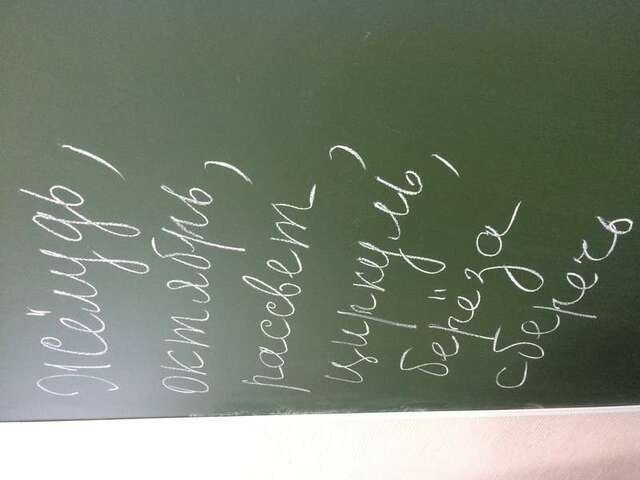 Жёлудь,
октябрь,
рассвет,
циркуль,
берёза
сберечь